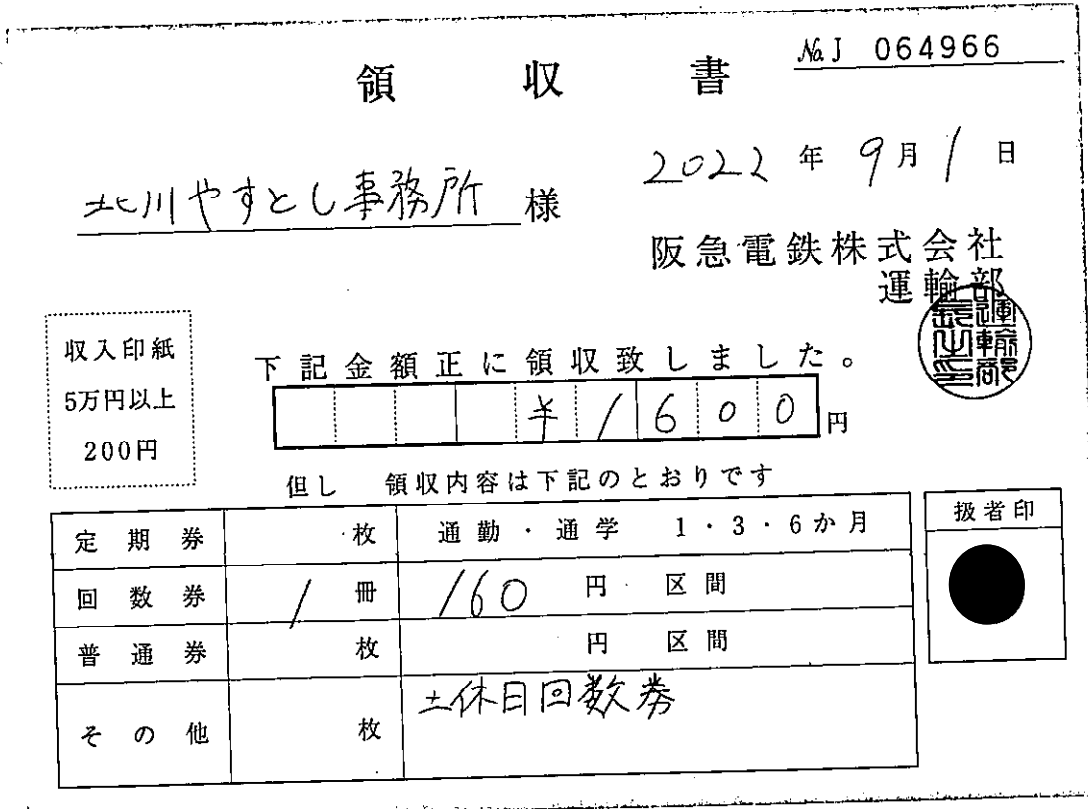 № J 064966
領収書
2022年9月1日
北川やすとし事務所 様
阪急電鉄株式会社
運輸部
運輸部長之印
収入印紙
5万円以上
200円
下記金額正に領収致しました。
¥1600円
但し 領収内容は下記のとおりです
定期券 枚 通勤・通学 1・3・6か月
回数券 1冊 160円 区間
普通券 枚 円 区間
その他 枚 土休日回数券
扱者印